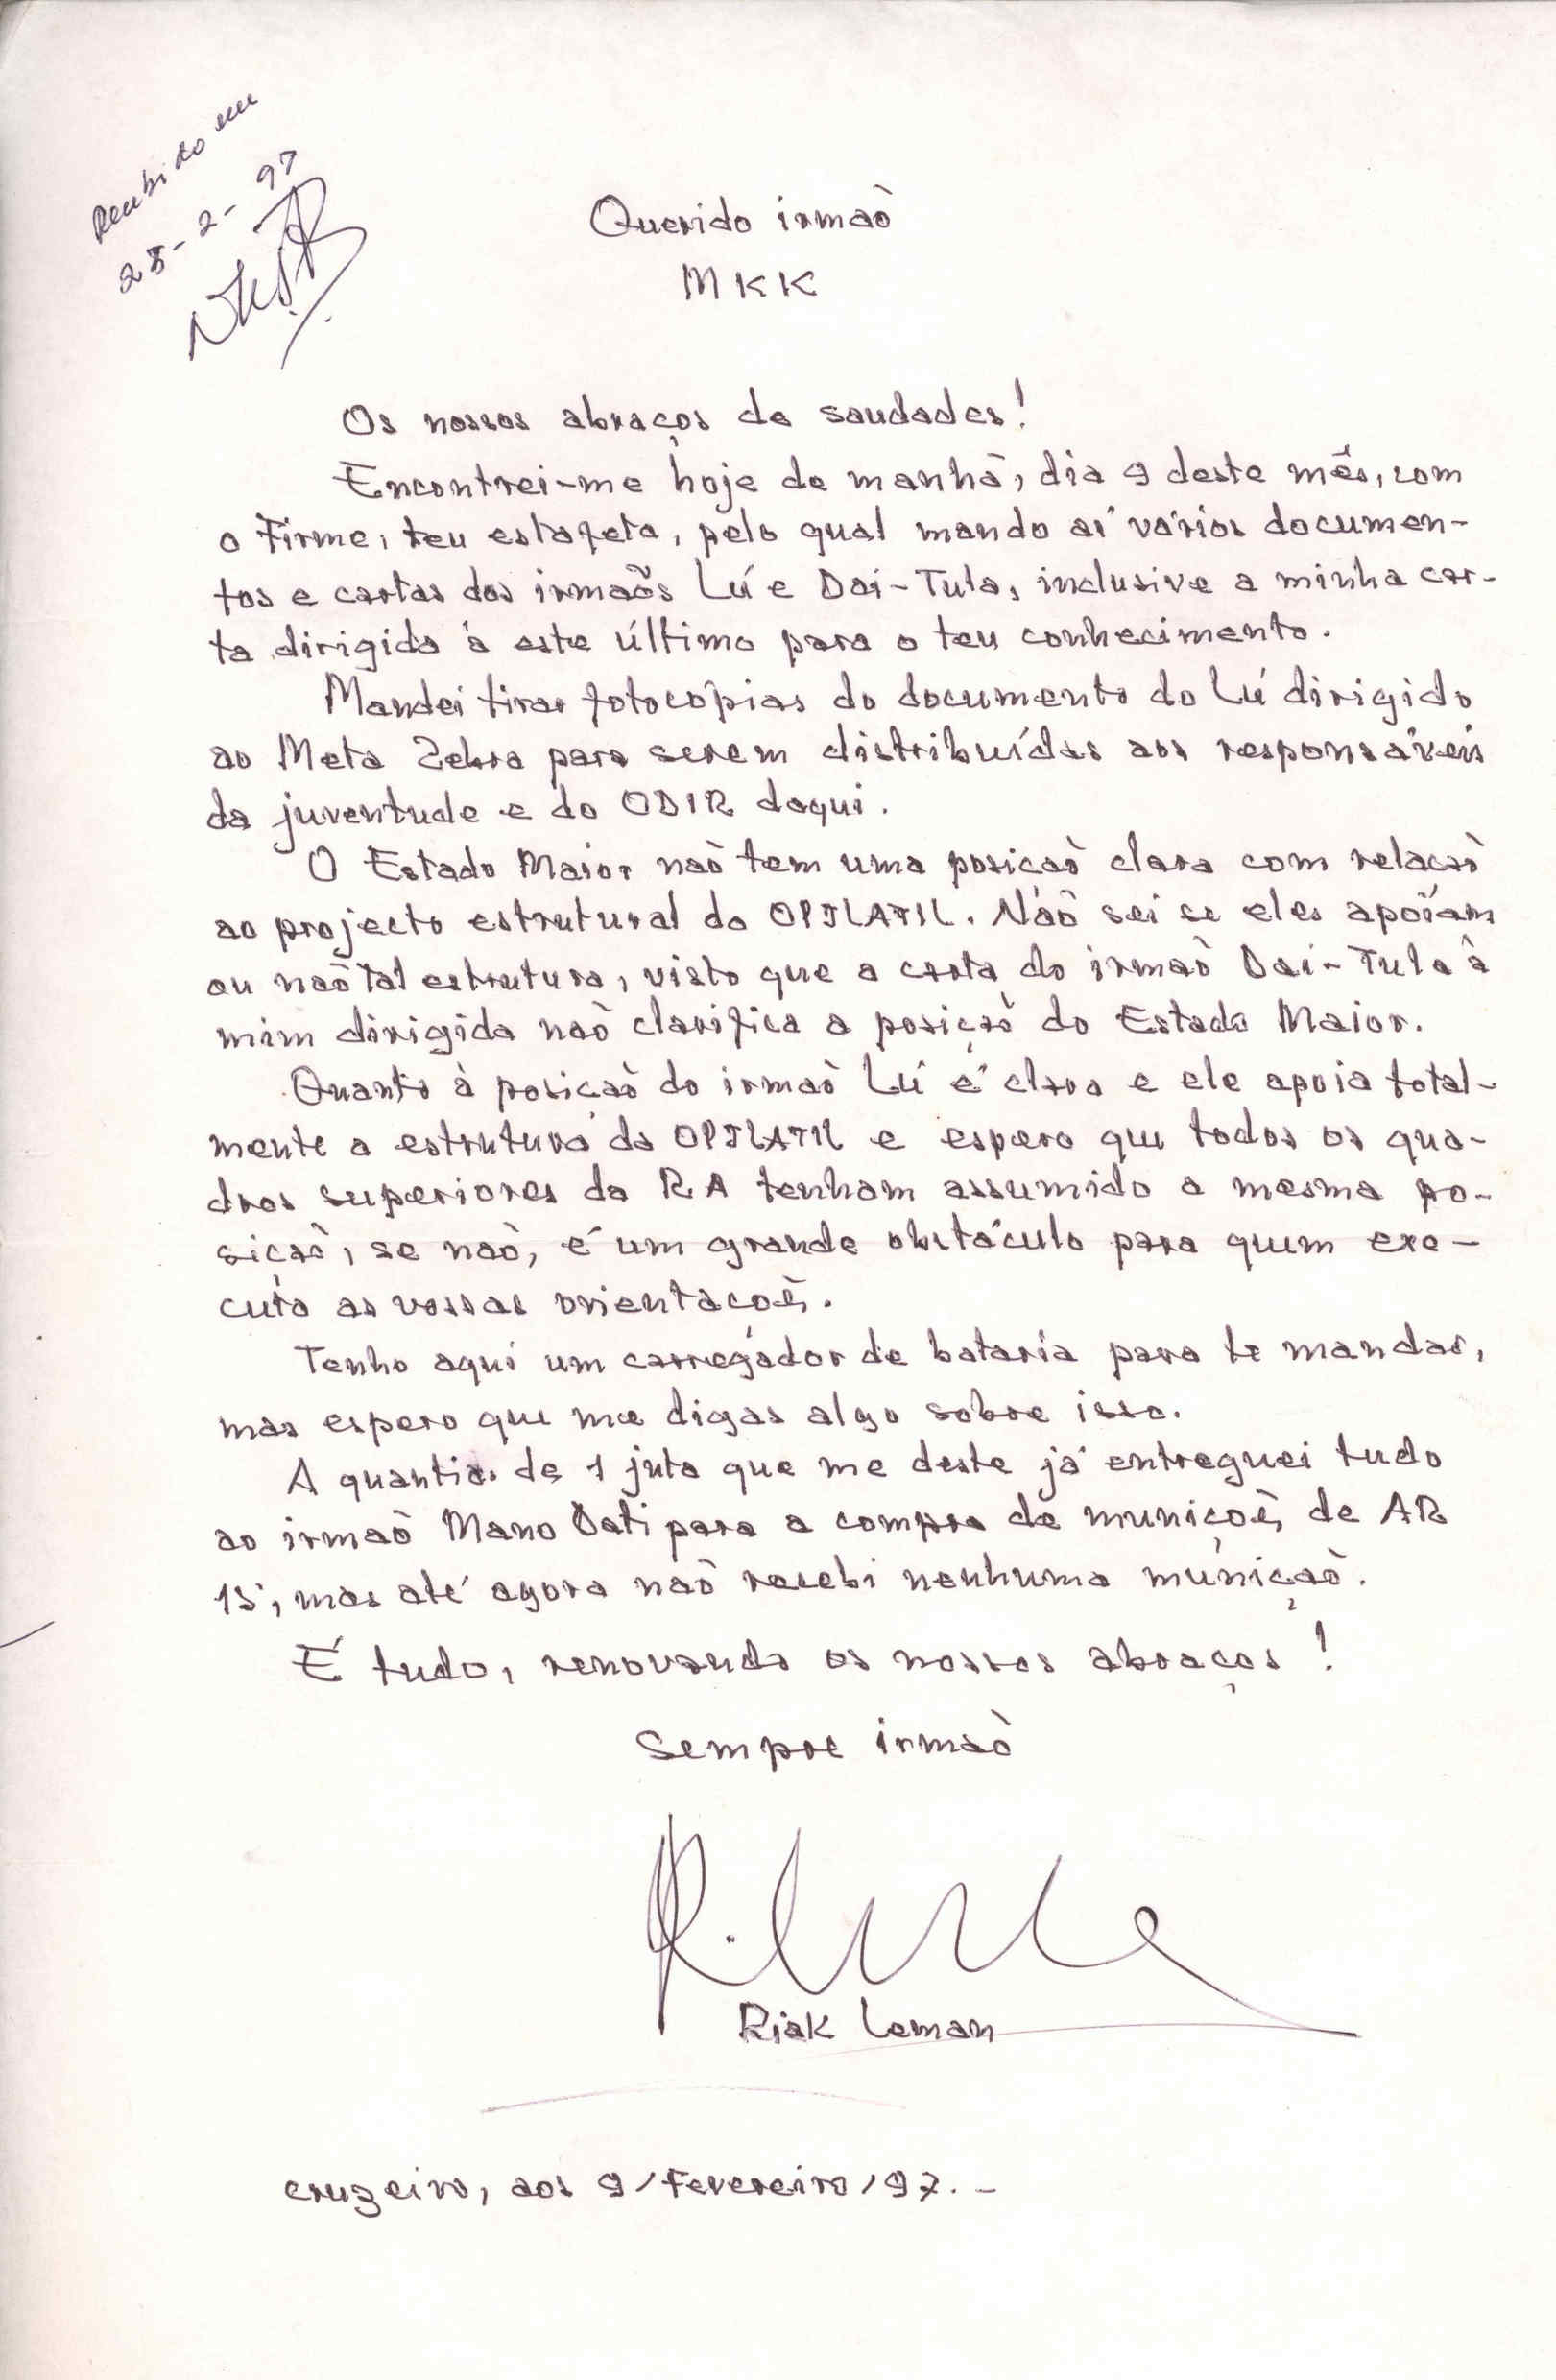 Recebido em
28-2-97
Querido irmaõ
MKK
Os nossos abraços de saudades!
Encontrei-me hoje de manhã, dia 9 deste mês, com
o Firme, teu estafeta, pelo qual mando aí vários documen-
tos e cartas dos irmaõs Lú e Dai-Tula, inclusive a minha car-
ta dirigida à este último para o teu conhecimento.
Mandei tirar fotocópias do documento do Lú dirigido
ao Meta Zebra para serem distribuídas aos responsáveis
da juventude e do ODIR daqui.
O Estado Maior naõ tem uma posiçaõ clara com relaçaõ
ao projecto estrutural do OPJLATIL. Naõ sei se eles apoiam
ou naõ tal estrutura, visto que a carta do irmaõ Dai-Tula à
mim dirigida naõ clarifica a posiçaõ do Estado Maior.
Quanto à posiçaõ do irmaõ Lú é clara e ele apoia total-
mente a estrutura da OPJLATIL e espero que todos os qua-
dros superiores da RA tenham assumido a mesma po-
siçaõ, se naõ, é um grande obstáculo para quem exe-
cuta as vossas orientaçoẽs.
Tenho aqui um carregador de bataria para te mandar,
mas espero que me digas algo sobre isso.
A quantia de 1 juta que me deste já entreguei tudo
ao irmaõ Mano Dati para a compra de muniçoẽs de AR
15, mas até agora naõ recebi nenhuma muniçaõ.
É tudo, renovando os nossos abraços!
Sempre irmaõ
Riak Leman
Cruzeiro, aos 9/Fevereiro/97.-